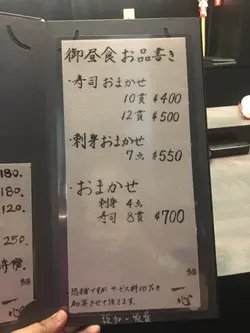 御昼食お品書き
・寿司おまかせ
10貫 $400
12貫 $500
・刺身おまかせ
7点 $550
・おまかせ
刺身 4点
寿司 8貫 $700
恐縮ですが サービス料10%を
加算させて頂きます。
180.
180.
120.
250.
時價.